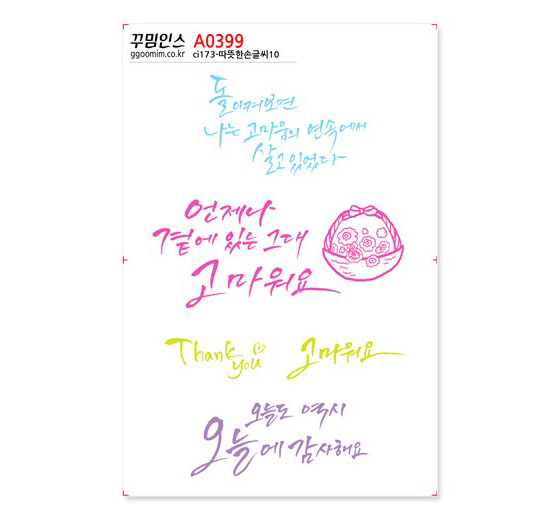 꾸밈인스 A0399
ggoomim.co.kr ci173-따뜻한손글씨10
돌이켜보면
나는 고마움의 연속에서
살고 있었다
언제나
곁에 있는 그대
고마워요
Thank you
고마워요
오늘도 역시
오늘에 감사해요